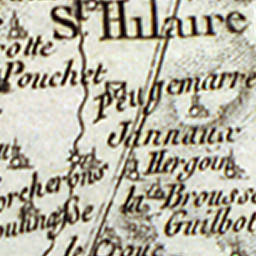 St Hilaire
otte
Pouchet
Peugemarre
Jannaux
Hergou
orcherons
la Brousse
ouling Be
Guilbot
le Crouc